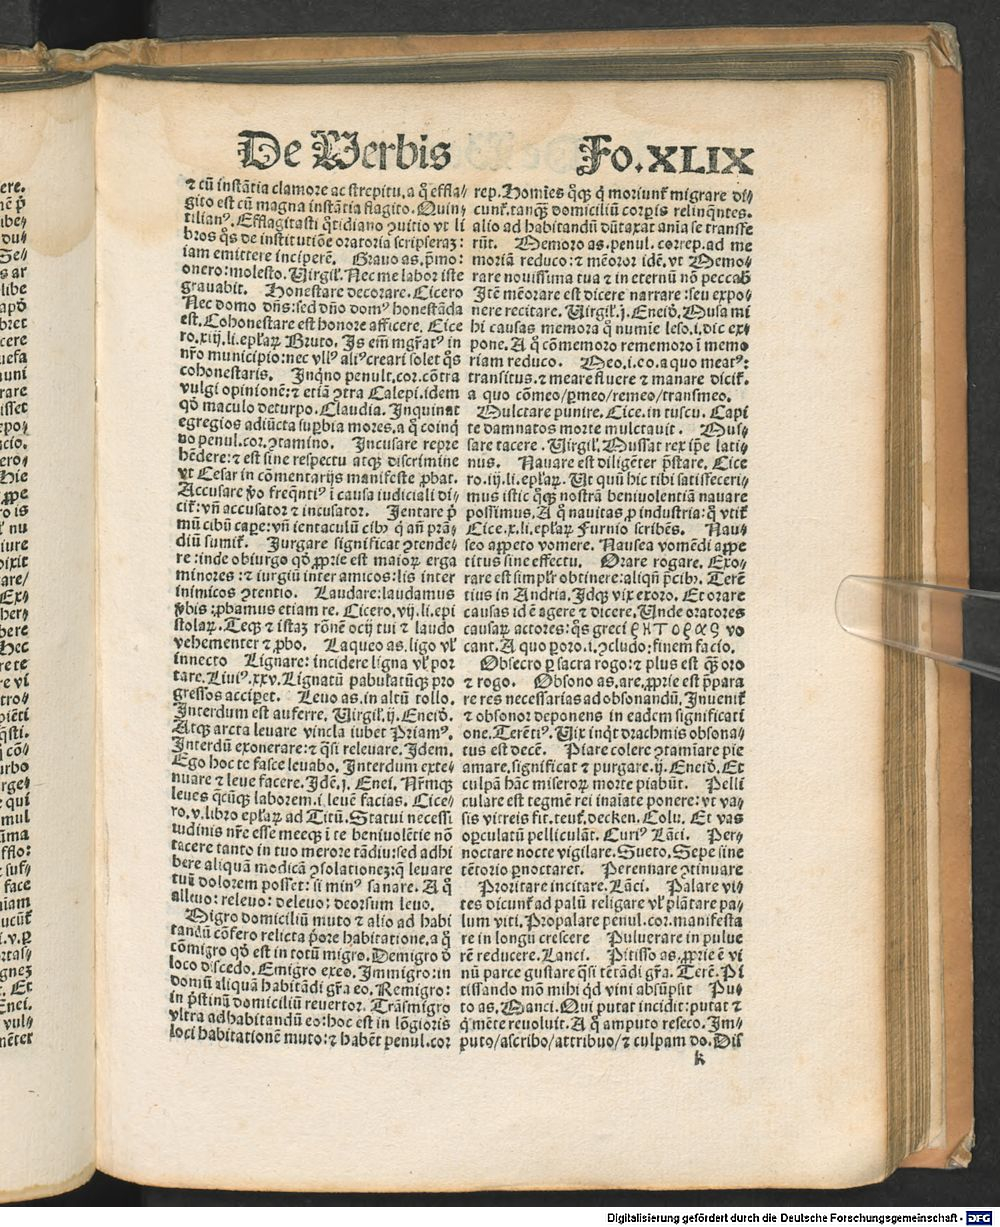 De Verbis Fo.XLIX
⁊ cũ instãtia clamore ac strepitu.a q̃ effla⸗
gito est cũ magna instãtia flagito. Quin⸗
tilianꝰ. Efflagitasti q̃tidiano ꝯuitio vt li
bros q̃s de institutiõe oratoria scripseraʒ:
iam emittere inciperẽ. Grauo as.p̃mo:
onero:molesto. Virgil̃. Nec me labor iste
grauabit. Honestare decorare. Cicero
Nec domo dñs:sed dño domꝰ honestãda
est. Cohonestare est honore afficere. Cice
ro.xiij.li.ep̃laꝝ Bruto. Js em̃ mgr̃atꝰ in
nr̃o municipio:nec vllꝰ aliꝰ creari solet q̃s
cohonestaris. Jnq̃no penult.cor.cõtra
vulgi opinionẽ:⁊ etiã ꝯtra Calepi.idem
qd̃ maculo deturpo. Claudia. Jnquinat
egregios adiũcta suꝑbia mores.a q̃ coinq̃
no penul.cor.ꝯtamino. Jncusare repre
hẽdere:⁊ est sine respectu atqꝫ discrimine
vt Cesar in cõmentarijs manifeste ꝓbat.
Accusare ṽo freq̃ntiꝰ ĩ causa iudiciali di⸗
cit̃:vñ accusator ⁊ incusator. Jentare p̃
mũ cibũ caꝑe:vñ ientaculũ cibꝰ q̃ añ prã⸗
diũ sumit̃. Jurgare significat ꝯtende⸗
re:inde obiurgo qd̃ ꝓprie est maioꝝ erga
minores:⁊ iurgiũ inter amicos:lis inter
inimicos ꝯtentio. Laudare:laudamus
ṽbis:ꝓbamus etiam re. Cicero.vij.li.epi
stolaꝝ. Teqꝫ ⁊ istaʒ rõnẽ ocij tui ⁊ laudo
vehementer ⁊ ꝓbo. Laqueo as.ligo vl̃
innecto Lignare: incidere ligna vl̃ por
tare. Liuiꝰ.xxv. Lignatũ pabulatũqꝫ pro
gressos acciꝑet. Leuo as.in altũ tollo.
Jnterdum est auferre. Virgil̃.ij. Eneid̃.
Atqꝫ arcta leuare vincla iubet Priamꝰ.
Jnterdũ exonerare:⁊ q̃si releuare. Jdem.
Ego hoc te fasce leuabo. Jnterdum exte⸗
nuare ⁊ leue facere. Jdẽ.j. Enei. Nr̃mqꝫ
leues q̃cũqꝫ laborem.i.leuẽ facias. Cice⸗
ro.v.libro ep̃laꝝ ad Titũ. Statui necessi
tudinis nr̃e esse meeqꝫ ĩ te beniuolẽtie nõ
tacere tanto in tuo merore tãdiu:sed adhi
bere aliquã modicã ꝯsolationeʒ:q̃ leuare
tuũ dolorem posset: si minꝰ sanare. A q̃
alleuo: releuo: deleuo: deorsum leuo.
Migro domiciliũ muto ⁊ alio ad habi
tandũ cõfero relicta p̃ore habitatione.a q̃
cõmigro qd̃ est in totũ migro. Demigro d̃
loco discedo. Emigro exeo. Jmmigro:in
domũ aliquã habitãdi gr̃a eo. Remigro:
in p̃stinũ domiciliũ reuertor. Trãsmigro
vltra ad habitandũ eo:hoc est in lõgioris
loci habitationẽ muto:⁊ habẽt penul.cor
rep. Homĩes q̃qꝫ q̃ moriunt̃ migrare di⸗
cunt̃.tanqꝫ̃ domiciliũ corꝑis relinq̃ntes.
alio ad habitandũ dũtaxat aĩa se transfe
rũt. Memoro as.penul.correp.ad me
moriã reduco:⁊ mẽoror idẽ.vt Memo⸗
rare nouissima tua ⁊ in eternũ nõ peccab̃
Jtẽ mẽorare est dicere narrare:seu expo⸗
nere recitare. Virgil̃.j. Eneid̃. Musa mi
hi causas memora q̃ numĩe leso.i.dic ex⸗
pone. A q̃ cõmemoro rememoro ĩ memo
riam reduco. Meo.i.eo.a quo meatꝰ:
transitus.⁊ meare fluere ⁊ manare dicit̃.
a quo cõmeo/ꝑmeo/remeo/transmeo.
Mulctare punire. Cice.in tuscu. Capi
te damnatos morte mulctauit. Mus⸗
sare tacere. Virgil̃. Mussat rex ip̃e lati⸗
nus. Nauare est diligẽter p̃stare. Cice
ro.iij.li.ep̃laꝝ. Ut quũ hic tibi satisfeceri⸗
mus istic q̃qꝫ nostrã beniuolentiã nauare
possimus. A q̃ nauitas ꝓ industria: q̃ vtit̃
Cice.x.li.ep̃laꝝ Furnio scribẽs. Nau⸗
seo apꝑeto vomere. Nausea vomẽdi apꝑe
titus sine effectu. Orare rogare. Exo⸗
rare est simpl̃r obtinere:aliqñ p̃cibꝰ. Terẽ
tius in Andria. Jdqꝫ vix exoro. Et orare
causas id ẽ agere ⁊ dicere. Unde oratores
causaꝝ actores:q̃s greci ρητορας vo
cant. A quo ꝑoro.i.ꝯcludo:finem facio.
Obsecro ꝑ sacra rogo:⁊ plus est qꝫ̃ oro
⁊ rogo. Obsono as.are.ꝓprie est p̃para
re res necessarias ad obsonandũ. Jnuenit̃
⁊ obsonor deponens in eadem significati
one. Terẽtiꝰ. Uix inq̃t drachmis obsona⸗
tus est decẽ. Piare colere ꝯtamĩare pie
amare.significat ⁊ purgare.ij. Eneid̃. Et
culpã hãc miseroꝝ morte piabũt. Pelli
culare est tegmẽ rei inaĩate ponere: vt va⸗
sis vitreis fit.teut̃.decken. Colu. Et vas
oꝑculatũ pelliculãt. Curiꝰ Lãci. Per⸗
noctare nocte vigilare. Sueto. Sepe sine
tẽtorio ꝑnoctaret. Perennare ꝯtinuare
Proritare incitare. Lãci. Palare vi⸗
tes dicunt̃ ad palũ religare vl̃ plãtare pa⸗
lum viti. Propalare penul.cor.manifesta
re in longũ crescere Puluerare in pulue
rẽ reducere. Lanci. Pitisso as.ꝓprie ẽ vi
nũ parce gustare q̃si tẽtãdi gr̃a. Terẽ. Pi
tissando mõ mihi qd vini absũpsit Pu⸗
to as. Manci. Qui putat incidit:putat ⁊
q̃ mẽte reuoluit. A q̃ amputo reseco. Jm⸗
puto/ascribo/attribuo/⁊ culpam do. Dis
k
Digitalisierung gefördert durch die Deutsche Forschungsgemeinschaft - DFG